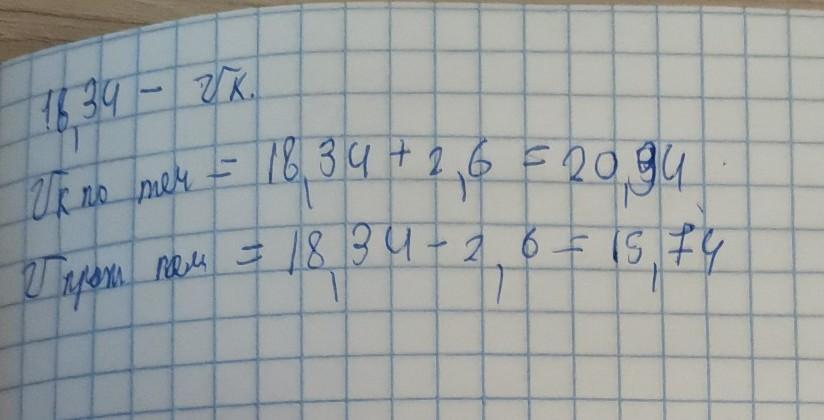 18,34 - Vк.
Vк по теч = 18,34 + 2,6 = 20,94
V прот теч = 18,34 - 2,6 = 15,74